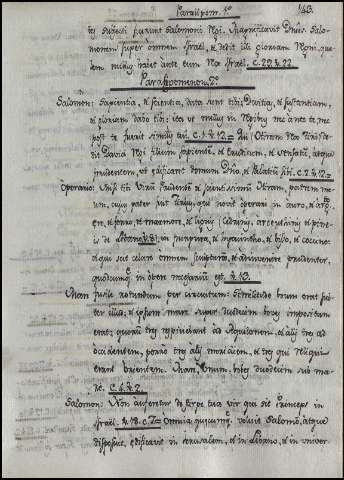 Paralipom. 1º 143
tes subjecti fuerunt Salomoni Regi. Magnificavit Dñus Salo-
monem super omnem Israël, et dedit illi gloriam Regni, qua-
lem nullus ante eum Rex Israël. C. 29. 22.
Paralipomenon. 2º
Salomon: Sapientia, et scientia, data sunt tibi: Divitias, et substantiam,
et gloriam dabo tibi: ita ut nullus in Regibus nec ante te nec
post te fuerit similis tui. C. 1. 12. = Qui
David Regi filium sapientem, et eruditum, et sensatum, atque
prudentem, ut edificaret domum Dño, et Palatium sibi. C. 2. 12. =
Operario: Misi tibi Virum prudentem et scientissimum Hiram, patrem me-
um, cujus pater fuit Tyrius, qui novit operari in auro, et
ere, et ferro, et marmore, et lignis
de Libano, 8. in purpura, et hyacintho, et bisso, et coccino:
et qui scit celare omnem sculpturam, et adinvenire prudenter,
quodcumque in opere necesarium est. 13.
Mare rotundum per circuitum: Similitudo boum erat sub-
ter illud: et ipsum mare super duodecim boves impositum
erat: quorum tres respiciebant ad Aquilonem, et alii tres ad
occidentem, porro tres alii meridiem, et tres qui reliqui
erant orientem. boves duodecim sub ma-
re. C. 4. 2.
Salomon: Non auferetur de stirpe tua vir qui sit Princeps in
Israël. 18. C. 7. = Omnia quæcumque voluit Salomon, atque
disposuit, edificavit in Jerusalem, et in Libano, et in univer-